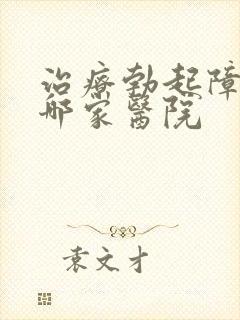 治療勃起障
哪家醫院
袁文才